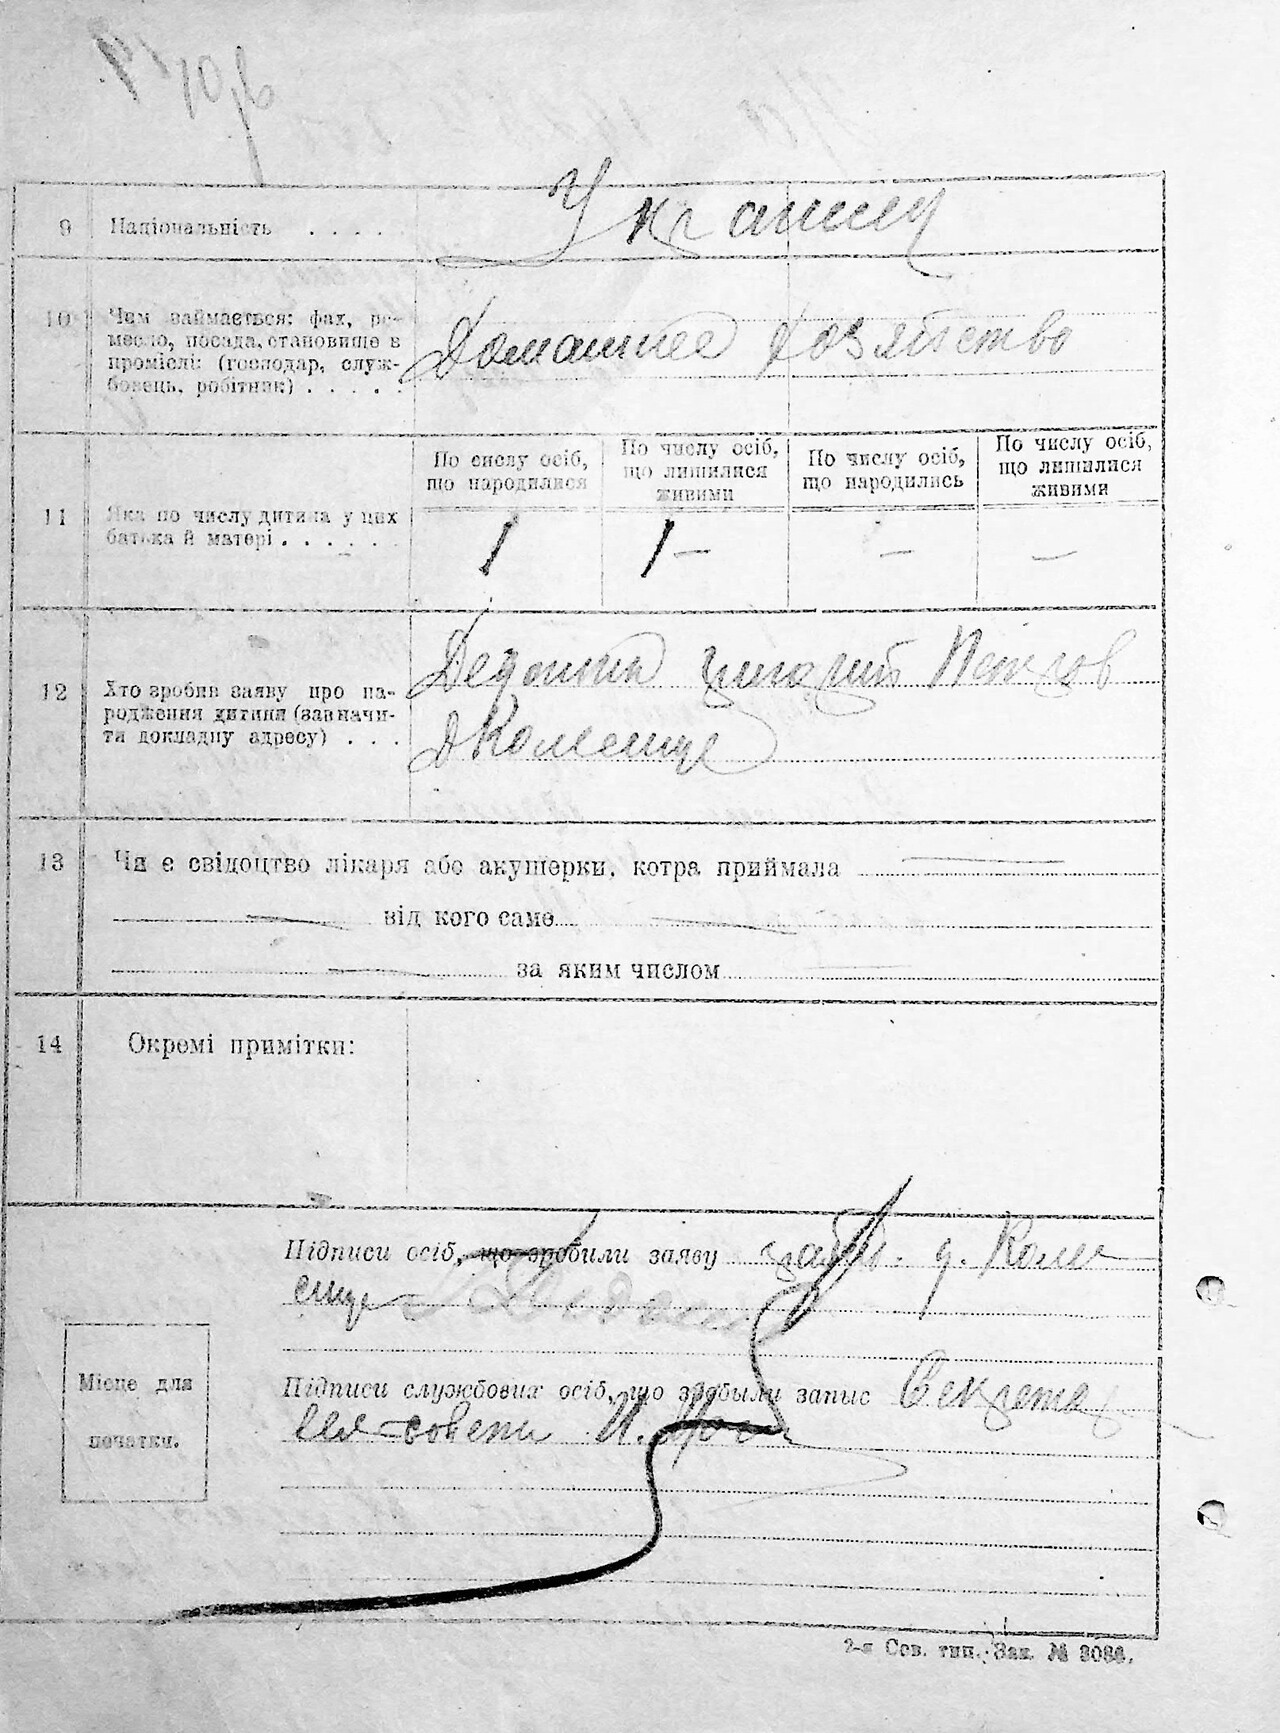 9 Національність . . . . .
Украинец
10 Чем займається: фах, ре-
месло, посада, становище в
промислі: (господар, служ-
бовець, робітник) . . . . .
Домашнее хозяйство
По числу осіб,
що народилися
По числу осіб,
що лишилися
живими
По числу осіб,
що народились
По числу осіб,
що лишилися
живими
11 Яка по числу дитина у цих
батька й матері . . . . . .
1 1 — — —
12 Хто зробив заяву про на-
родження дитини (зазначи-
ти докладну адресу) . . .
григорий Петров
13 Чи є свідоцтво лікаря або акушерки, котра приймала —
— від кого саме —
— за яким числом —
14 Окремі примітки:
Підписи осіб, що зробили заяву
Місце для
печатки.
Підписи службових осіб, що зробыли запис Секретар
2-я Сов. тип. Зак. № 3086.